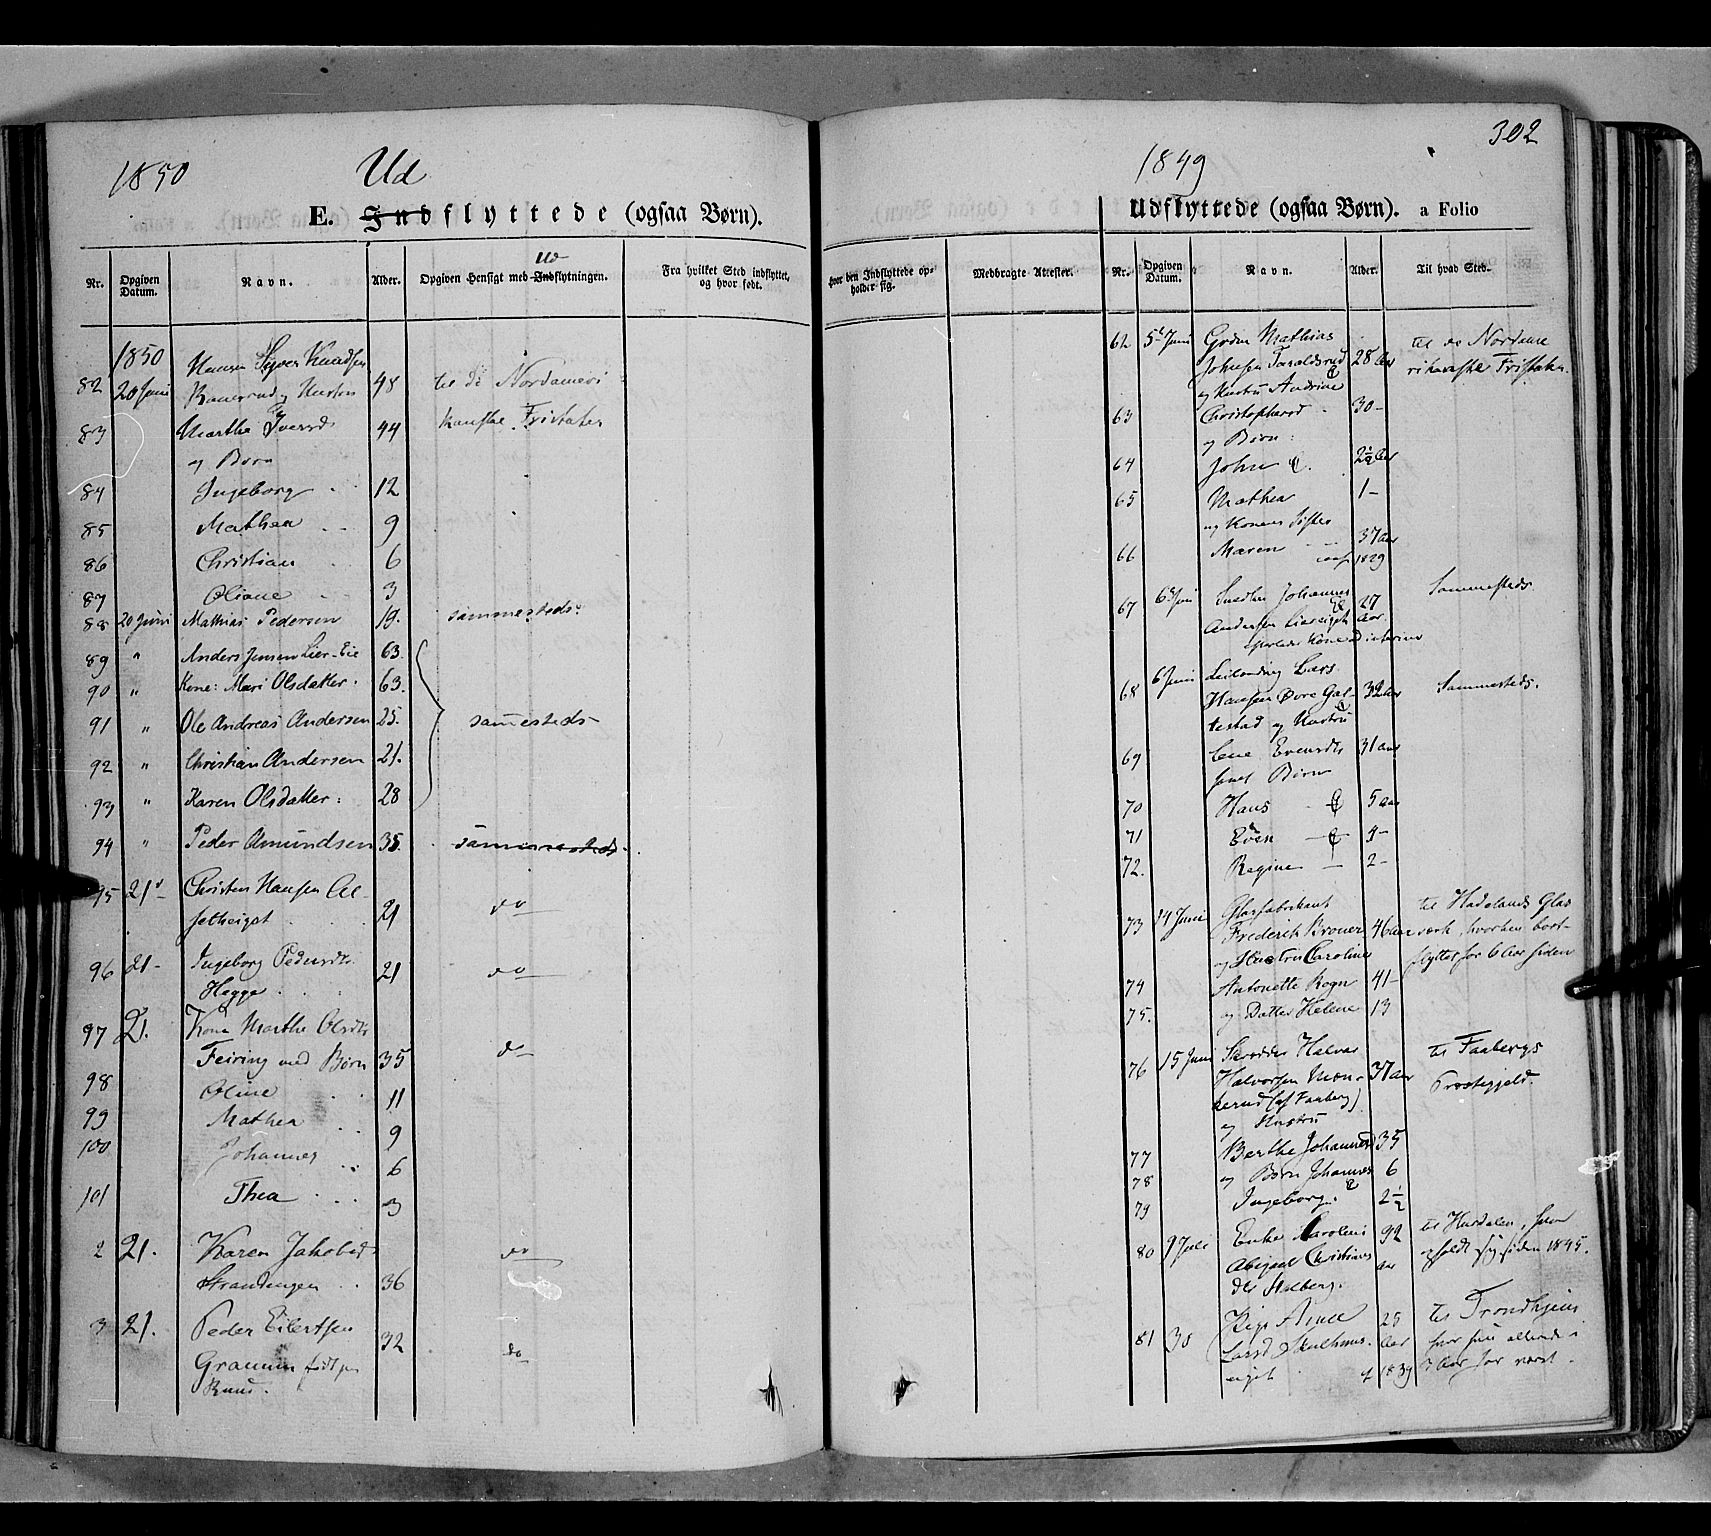 1850
Ud
E. Indflyttede (ogsaa Børn).
Nr.
Opgiven Datum.
Navn.
Alder.
Opgiven Hensigt med Indflytningen.
Ud
Fra hvilket Sted indflyttet, og hvor født.
1850
82 20 Juni Syver Knudsen
og Hustru 48 til de Nordameri
83 Marthe Iversd 44 kanske Fristater
og Børn
84 Ingeborg 12
85 Mathea 9
86 Christian 6
87 Oliane 3
88 20 Juni Mathias Pedersen 19. sammesteds
89 " Anders Jensen Lier-Eie 63.
90 " Kone: Mari Olsdatter. 63.
91 " Ole Andreas Andersen 25. sammesteds
92 " Christian Andersen 21.
93 " Karen Olsdatter: 28
94 " Peder Amundsen 35. sammesteds
95 21 Christen Hansen
21 do
96 21 Ingeborg Pedersdtr
Hegge 21 do
97 21. Kone Marthe Olsdtr
Feiring med Børn 35 do
98 Oline 11
99 Mathea 9
100 Johannes 6
101 Thea 3
2 21. Karen Jakobsd do
Strandengen 36
3 21. Peder Eilertsen 32
do
302
1849
Hvor den Indflyttede opholder sig.
Medbragte Attester.
Udflyttede (ogsaa Børn). a Folio
Nr.
Opgiven Datum.
Navn.
Alder.
Til hvad Sted.
62 5 Juni Mathias til de Nordame
Johnsen 28 Aar rikanske Fristater.
og Hustru Andrine
63 Christophersd 30
og Børn:
64 John 2½ Aar
65 Mathea 1
og Konens Søster
66 Maren 37 Aar
1829
67 6 Juni Johannes 27 Sammesteds
Andersen Aar
68 6 Juni Leilænding Lars
Hansen Øvre 32 Aar Sammesteds.
og Hustru
69 Lene Evensdtr 31 Aar
samt Børn
70 Hans 5 Aar
71 Even
72. Regine 2
73 14 Juni Glasfabrikant til Hadelands Glas
Frederik Broner 46 Aar værk, hvorhen bort-
og Hustru Caroline flyttet for 6 Aar siden
74 Antonette 41
75. og Datter Helene 13
76 15 Juni Skrædder Halvor til Faabergs
Halvorsen 37 Aar Præstegjeld.
(af Faaberg)
og Hustru
77 Berthe Johannesd 35
78 og Børn Johannes 6
79 Ingeborg. 2½
80 9 Juli Enke Karoline til Hurdalen, hvor
Abigael Christians siden 1845.
dtr
81 30 Pige 25 til Trondhjem
Larsd Aar hvor hun allerede i
1839 Aar har været.